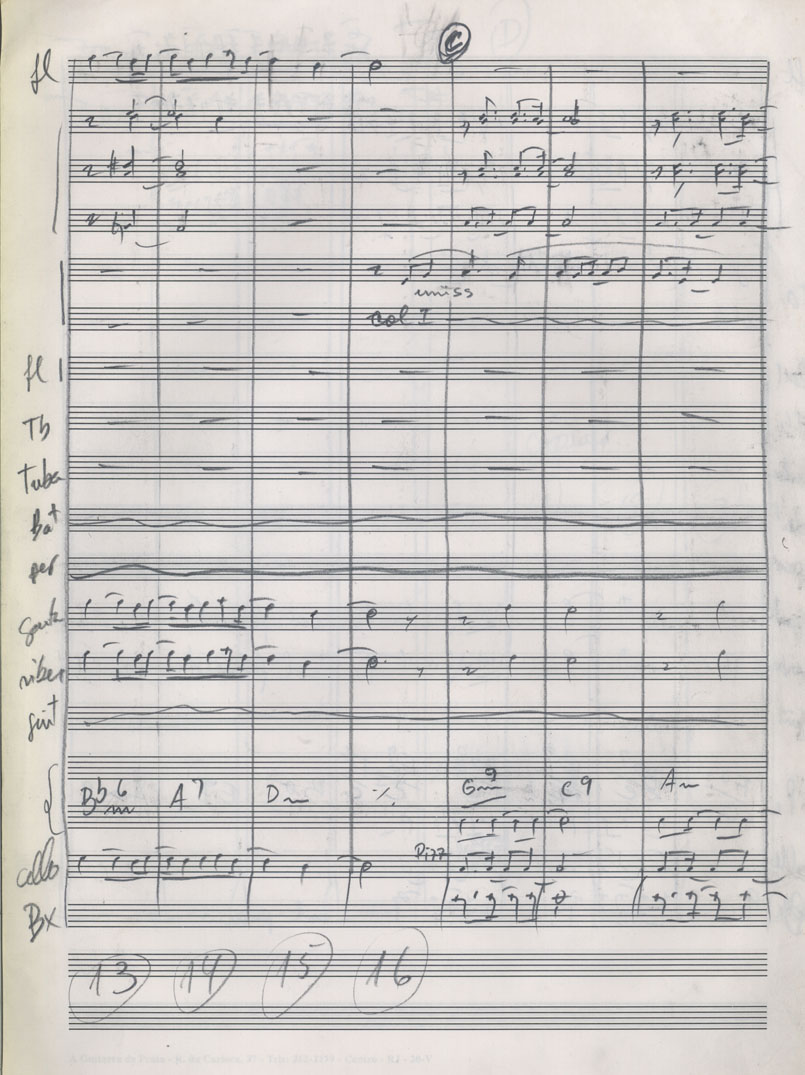 C
fl
uniss
col I
fl 1
Tb
Tuba
Bat
per
vibes
git
Bb6m A7 Dm ٪ Gm9 C9 Am
cello Pizz
Bx
13 14 15 16
A Guitarra de Prata - R. da Carioca, 37 - Tels: 262-1179 - Centro - RJ - 30-V